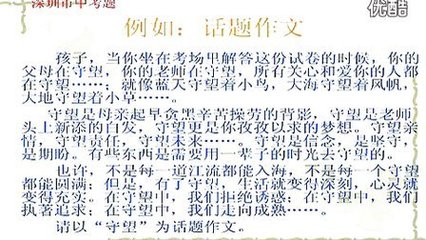 深圳市中考题
优酷
例如：话题作文
孩子，当你坐在考场里解答这份试卷的时候，你的
父母在守望，你的老师在守望，所有关心和爱你的人都
在守望……；就像蓝天守望着小鸟，大海守望着风帆，
大地守望着小草……。
守望是母亲起早贪黑辛苦操劳的背影，守望是老师
头上新添的白发，守望更是你孜孜以求的梦想。守望亲
情，守望责任，守望未来……。守望是信念，是坚守，
是期盼。有些东西是需要用一辈子的时光去守望的。
也许，不是每一道江流都能入海，不是每一个守望
都能圆满；但是，有了守望，生活就变得深刻，心灵就
变得充实。在守望中，我们拒绝诱惑；在守望中，我们
执著追求；在守望中，我们走向成熟……。
请以“守望”为话题作文。